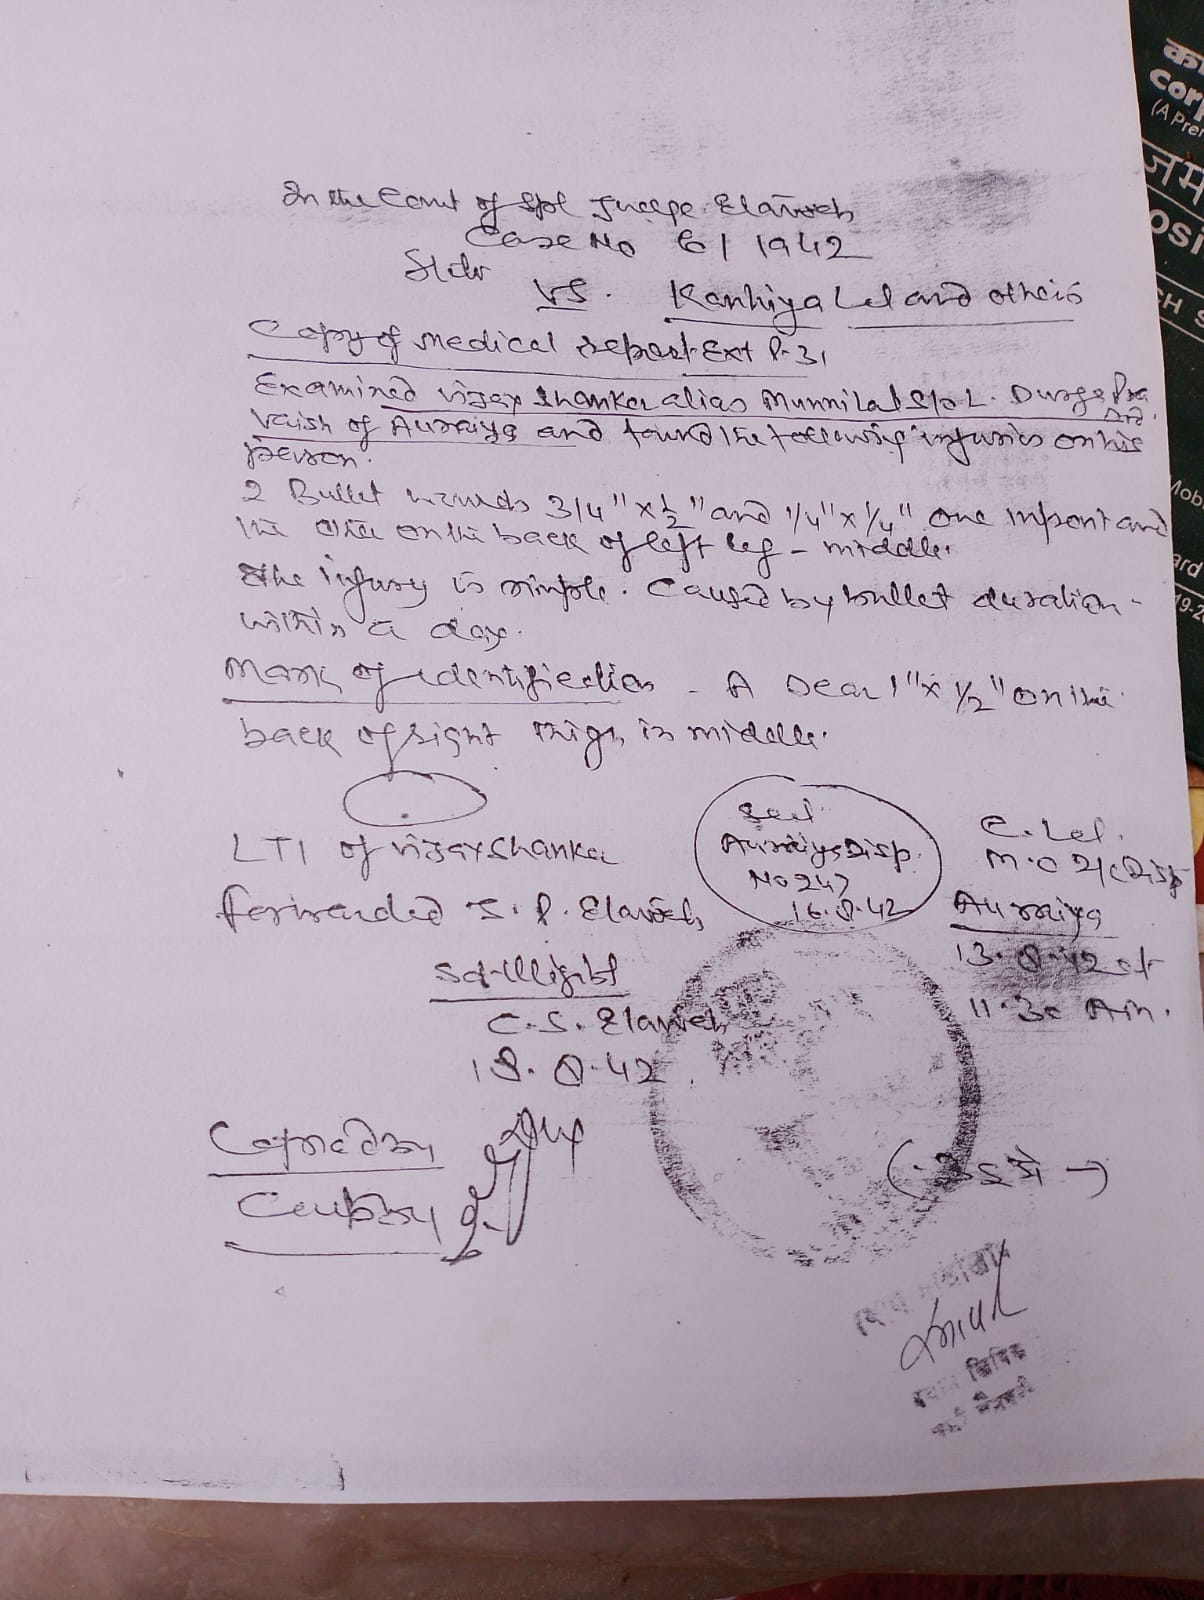 In the Court of Spl Judge Etawah
Case No 6/1942
State
VS. Kanhiya Lal and others
Copy of medical report Ext P-31
Examined Vijay Shanker alias Munnilal S/o L. Durga Pra
sad
Vaish of Auraiya and found the following injuries on his
person.
2 Bullet wounds 3/4" x 1/2" and 1/4" x 1/4" one in front and
the other on the back of left leg - middle.
The injury is simple. Caused by bullet duration -
within a day.
Mark of identification - A Scar 1" x 1/2" on the
back of right thigh in middle.
LTI of Vijay Shanker
Seal
Auraiya Disp.
No 247
16.8.42
C. Lal.
M.O I/c Disp
Auraiya
13.8.42 at
11.30 Am.
Forwarded S.P. Etawah
Sd-Illigible
C.S. Etawah
18.8.42
Copied by
Comp by
का
corp
(A Prem
जम
OSI
CH S
Mob
ard
19-2